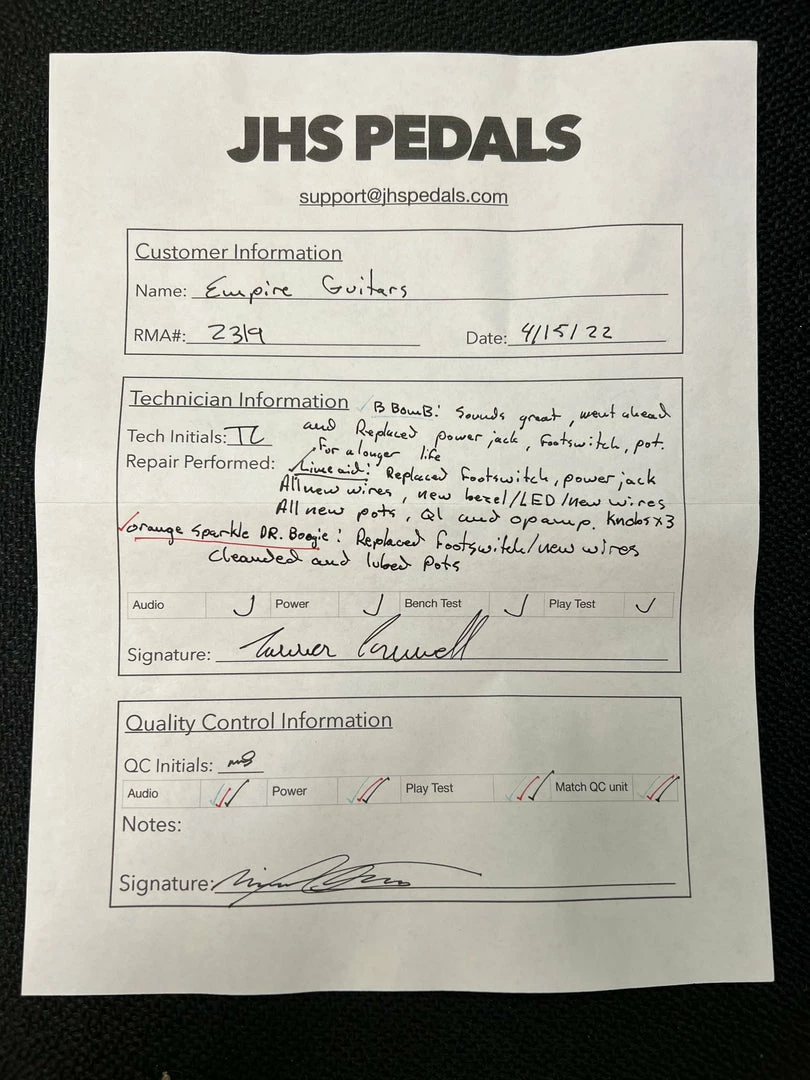 JHS PEDALS
support@jhspedals.com
Customer Information
Name: Empire Guitars
RMA#: 2319 Date: 4/15/22
Technician Information B BomB: Sounds great, went ahead
Tech Initials: TC and Replaced power jack, footswitch, pot.
for a longer life
Repair Performed: Lime aid: Replaced footswitch, power jack
All new wires, new bezel/LED/new wires
All new pots, Q1 and opamp. Knobs x3
Orange Sparkle DR. Boogie: Replaced footswitch/new wires
Cleanded and lubed pots
Audio ✓ Power ✓ Bench Test ✓ Play Test ✓
Signature:
Quality Control Information
QC Initials:
Audio ✓✓✓ Power ✓✓✓ Play Test ✓✓✓ Match QC unit ✓✓✓
Notes:
Signature: